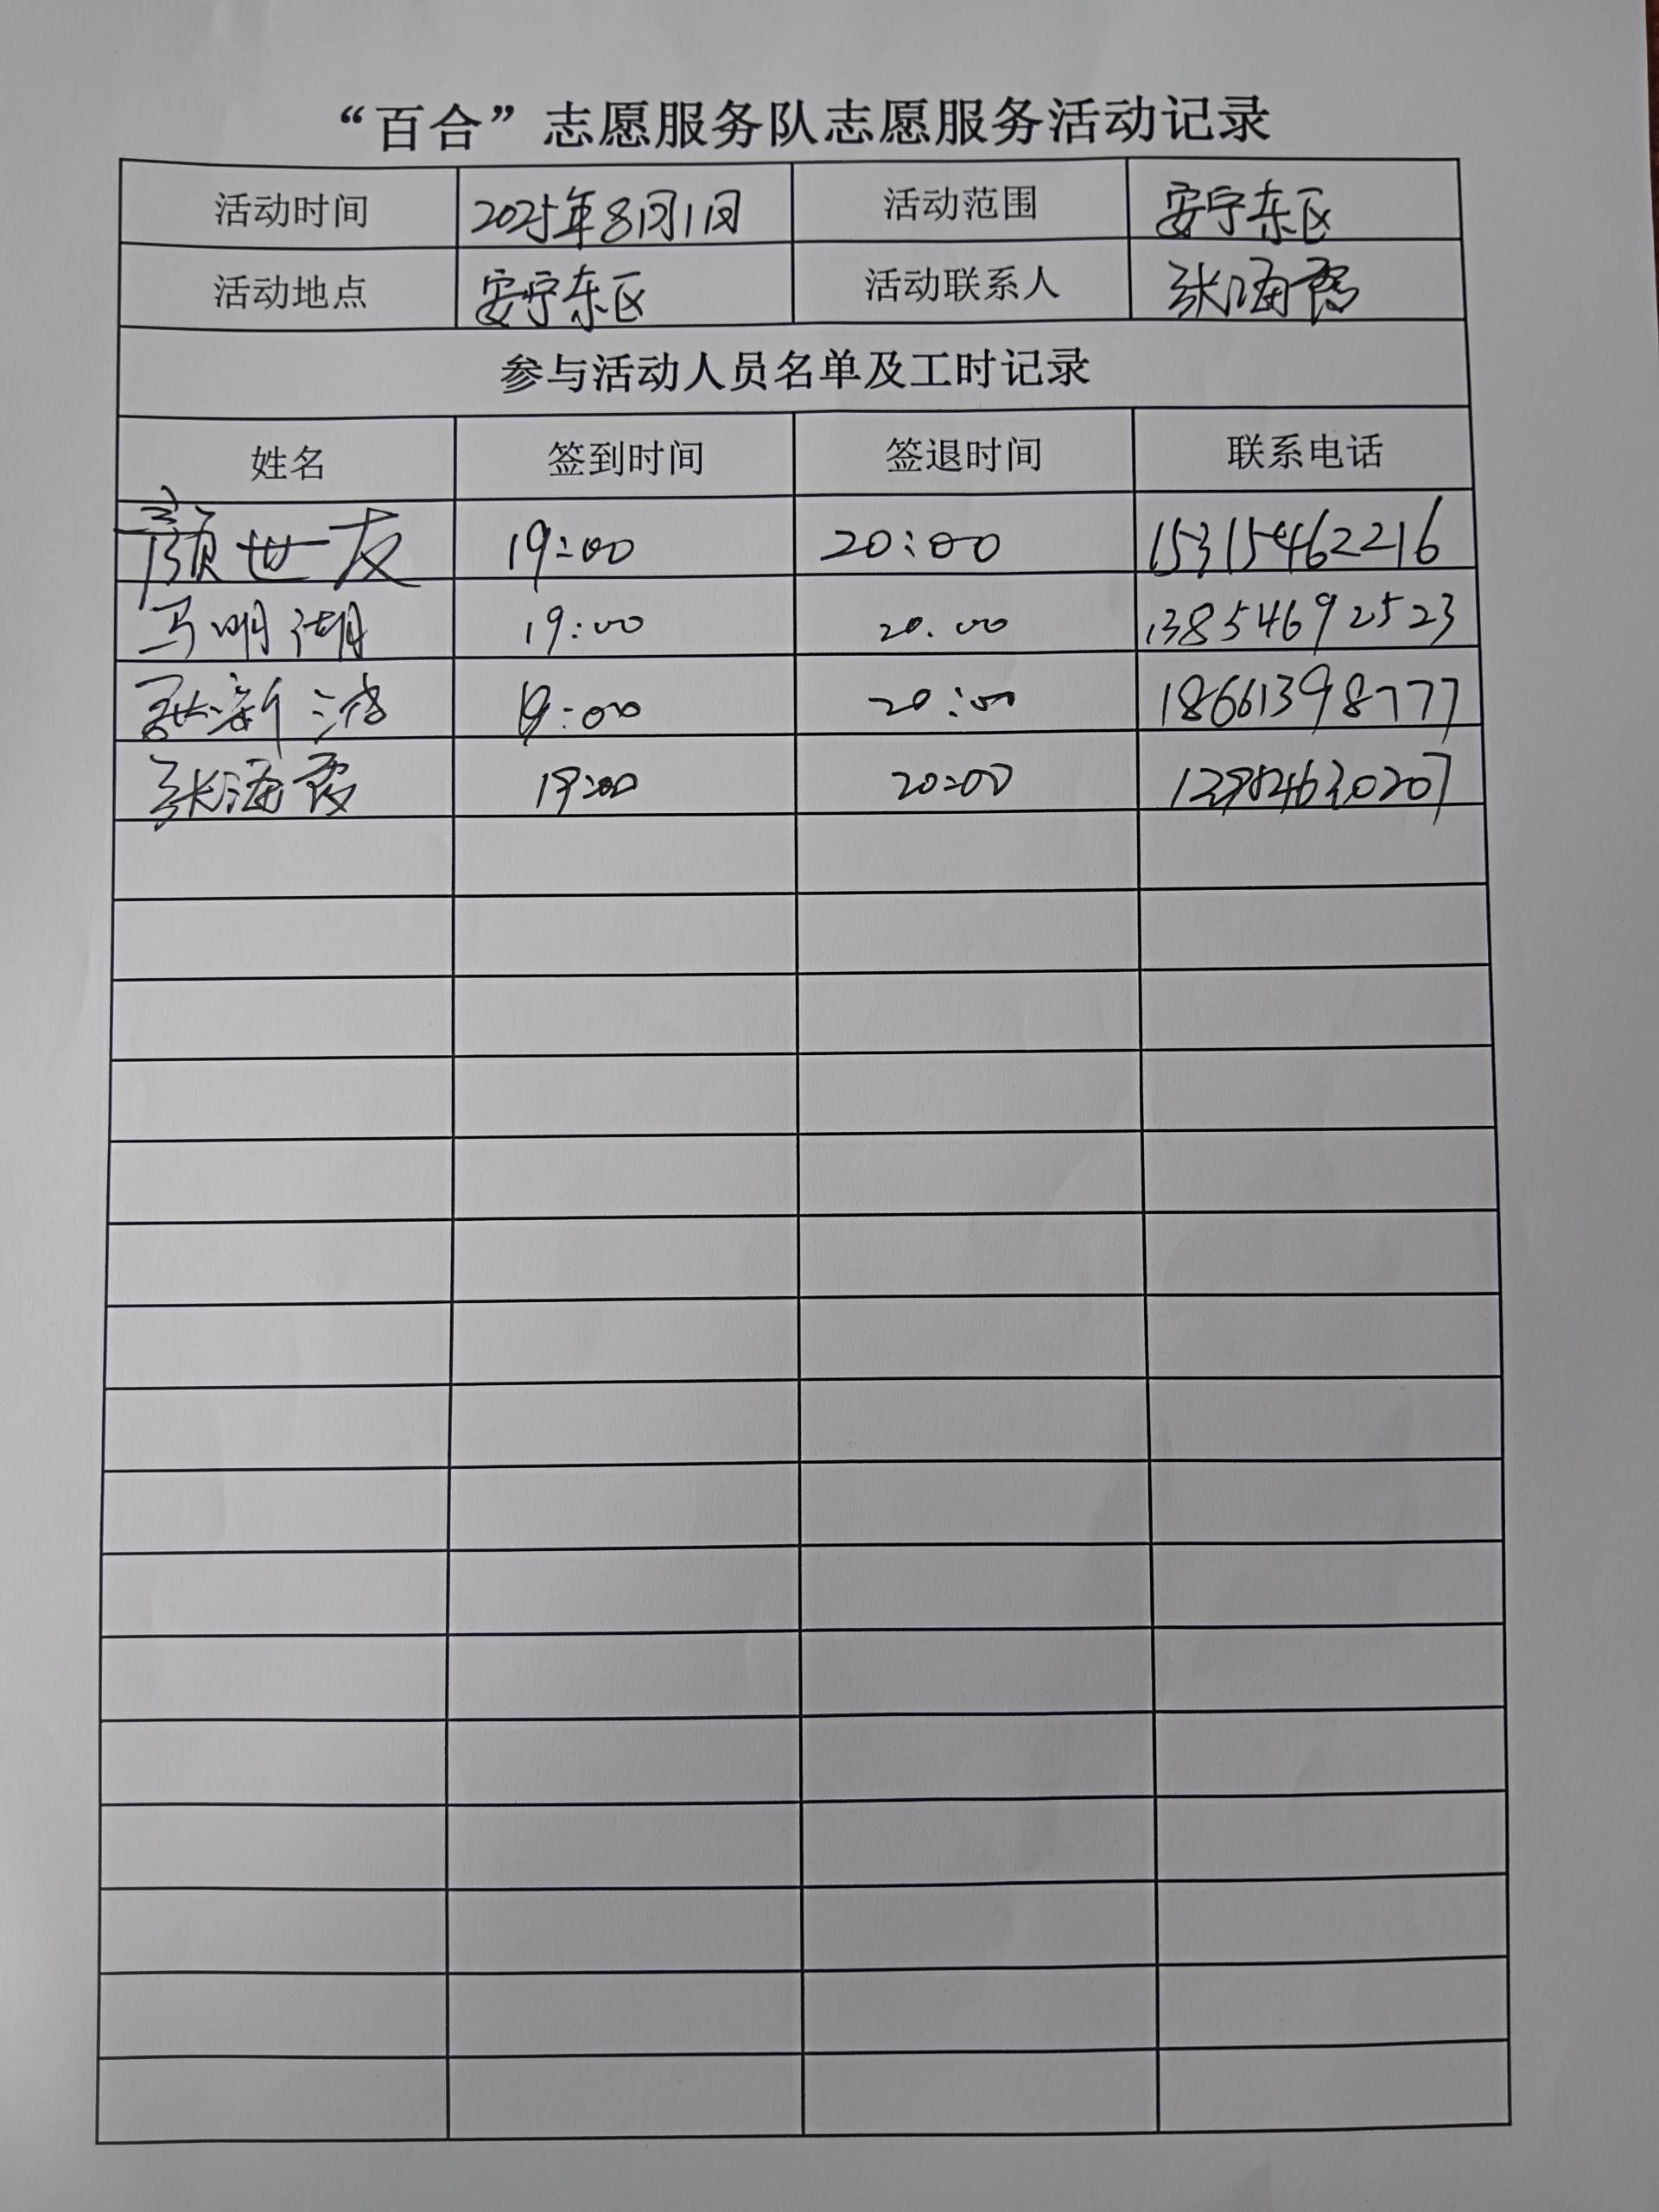 “百合”志愿服务队志愿服务活动记录
活动时间 2025年8月1日 活动范围 安宁东区
活动地点 安宁东区 活动联系人 张海霞
参与活动人员名单及工时记录
姓名 签到时间 签退时间 联系电话
颜世友 19:00 20:00 15315462216
马明湖 19:00 20.00 13854692523
新 19:00 20:00 18661398777
张海霞 19:00 20:00